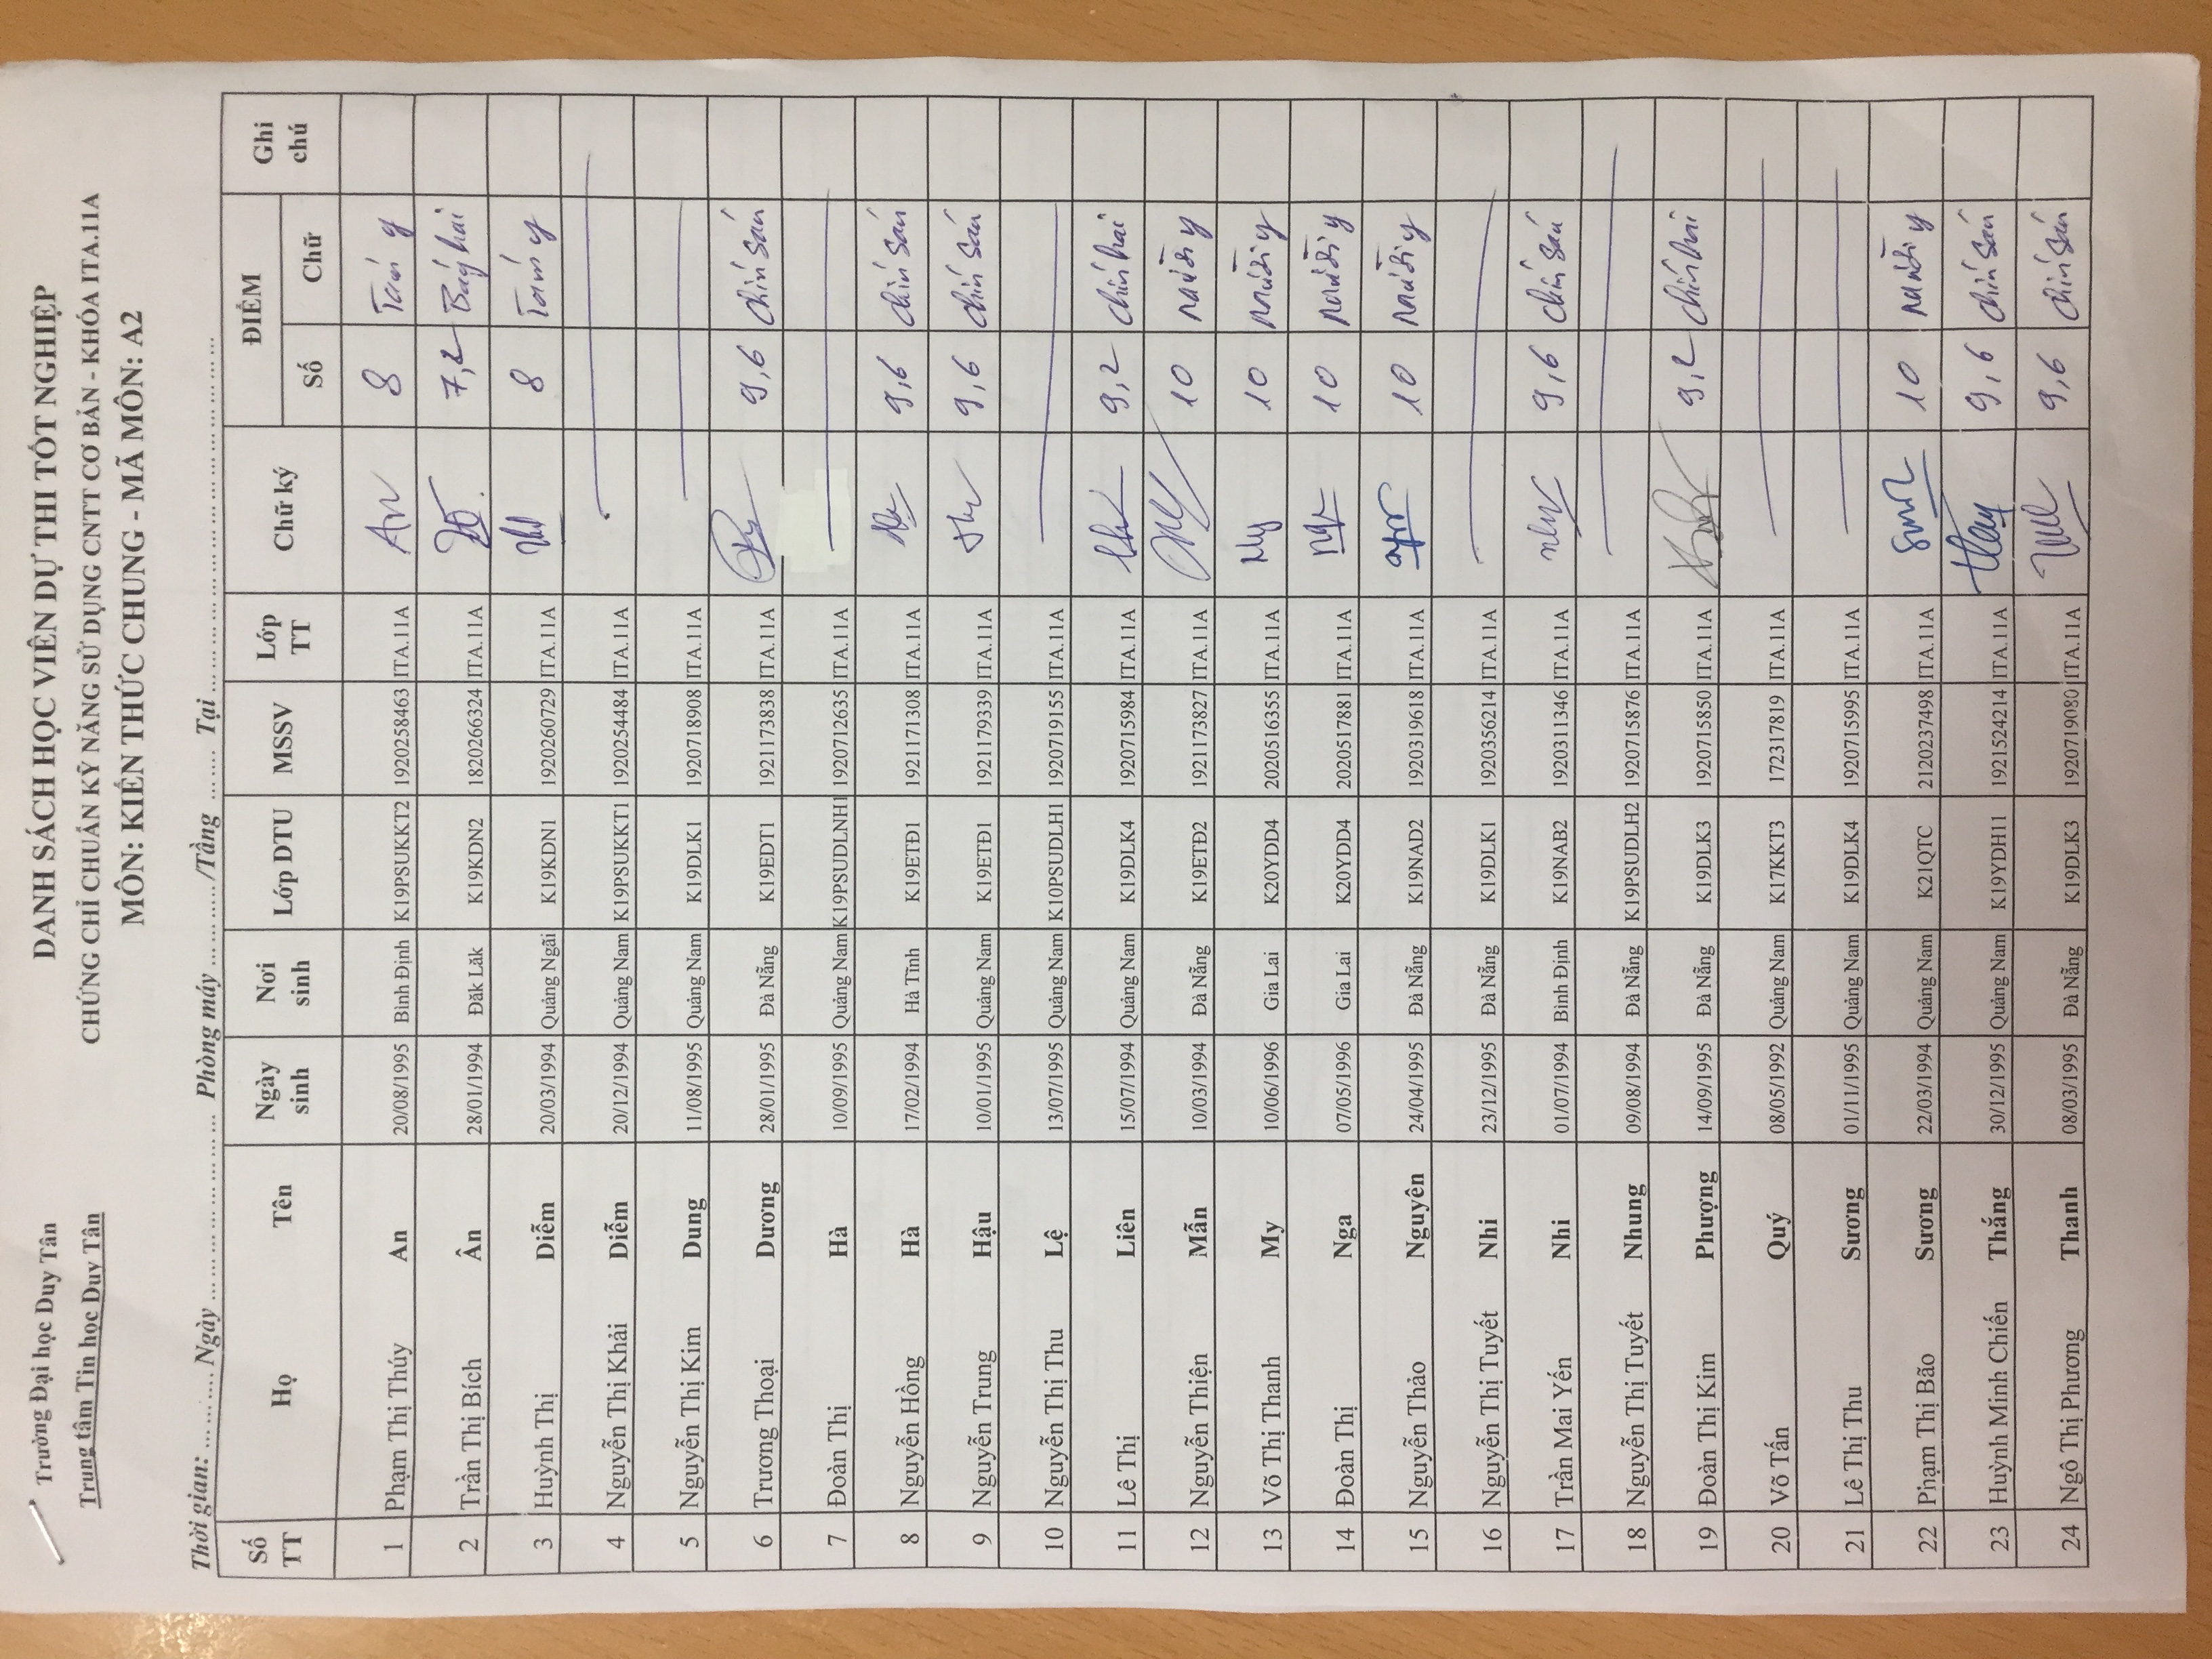 Trường Đại học Duy Tân
Trung tâm Tin học Duy Tân
DANH SÁCH HỌC VIÊN DỰ THI TỐT NGHIỆP
CHỨNG CHỈ CHUẨN KỸ NĂNG SỬ DỤNG CNTT CƠ BẢN - KHÓA ITA.11A
MÔN: KIẾN THỨC CHUNG - MÃ MÔN: A2
Thời gian: ............ Ngày ........................ Phòng máy ............/Tầng ........ Tại ................................................
Số TT Họ Tên Ngày sinh Nơi sinh Lớp DTU MSSV Lớp TT Chữ ký ĐIỂM Ghi chú
Số Chữ
1 Phạm Thị Thúy An 20/08/1995 Bình Định K19PSUKKT2 1920258463 ITA.11A An 8 Tám y
2 Trần Thị Bích Ân 28/01/1994 Đăk Lăk K19KDN2 1820266324 ITA.11A 7,2 Bảy hai
3 Huỳnh Thị Diễm 20/03/1994 Quảng Ngãi K19KDN1 1920260729 ITA.11A 8 Tám y
4 Nguyễn Thị Khải Diễm 20/12/1994 Quảng Nam K19PSUKKT1 1920254484 ITA.11A
5 Nguyễn Thị Kim Dung 11/08/1995 Quảng Nam K19DLK1 1920718908 ITA.11A
6 Trương Thoại Dương 28/01/1995 Đà Nẵng K19EDT1 1921173838 ITA.11A 9,6 chín sáu
7 Đoàn Thị Hà 10/09/1995 Quảng Nam K19PSUDLNH1 1920712635 ITA.11A
8 Nguyễn Hồng Hà 17/02/1994 Hà Tĩnh K19ETĐ1 1921171308 ITA.11A 9,6 chín sáu
9 Nguyễn Trung Hậu 10/01/1995 Quảng Nam K19ETĐ1 1921179339 ITA.11A 9,6 chín sáu
10 Nguyễn Thị Thu Lệ 13/07/1995 Quảng Nam K10PSUDLH1 1920719155 ITA.11A
11 Lê Thị Liên 15/07/1994 Quảng Nam K19DLK4 1920715984 ITA.11A 9,2 chín hai
12 Nguyễn Thiện Mẫn 10/03/1994 Đà Nẵng K19ETĐ2 1921173827 ITA.11A 10 mười y
13 Võ Thị Thanh My 10/06/1996 Gia Lai K20YDD4 2020516355 ITA.11A My 10 mười y
14 Đoàn Thị Nga 07/05/1996 Gia Lai K20YDD4 2020517881 ITA.11A 10 mười y
15 Nguyễn Thảo Nguyên 24/04/1995 Đà Nẵng K19NAD2 1920319618 ITA.11A 10 mười y
16 Nguyễn Thị Tuyết Nhi 23/12/1995 Đà Nẵng K19DLK1 1920356214 ITA.11A
17 Trần Mai Yến Nhi 01/07/1994 Bình Định K19NAB2 1920311346 ITA.11A 9,6 chín sáu
18 Nguyễn Thị Tuyết Nhung 09/08/1994 Đà Nẵng K19PSUDLH2 1920715876 ITA.11A
19 Đoàn Thị Kim Phượng 14/09/1995 Đà Nẵng K19DLK3 1920715850 ITA.11A 9,2 chín hai
20 Võ Tấn Quý 08/05/1992 Quảng Nam K17KKT3 172317819 ITA.11A
21 Lê Thị Thu Sương 01/11/1995 Quảng Nam K19DLK4 1920715995 ITA.11A
22 Phạm Thị Bão Sương 22/03/1994 Quảng Nam K21QTC 2120237498 ITA.11A 10 mười y
23 Huỳnh Minh Chiến Thắng 30/12/1995 Quảng Nam K19YDH11 1921524214 ITA.11A 9,6 chín sáu
24 Ngô Thị Phương Thanh 08/03/1995 Đà Nẵng K19DLK3 1920719080 ITA.11A 9,6 chín sáu